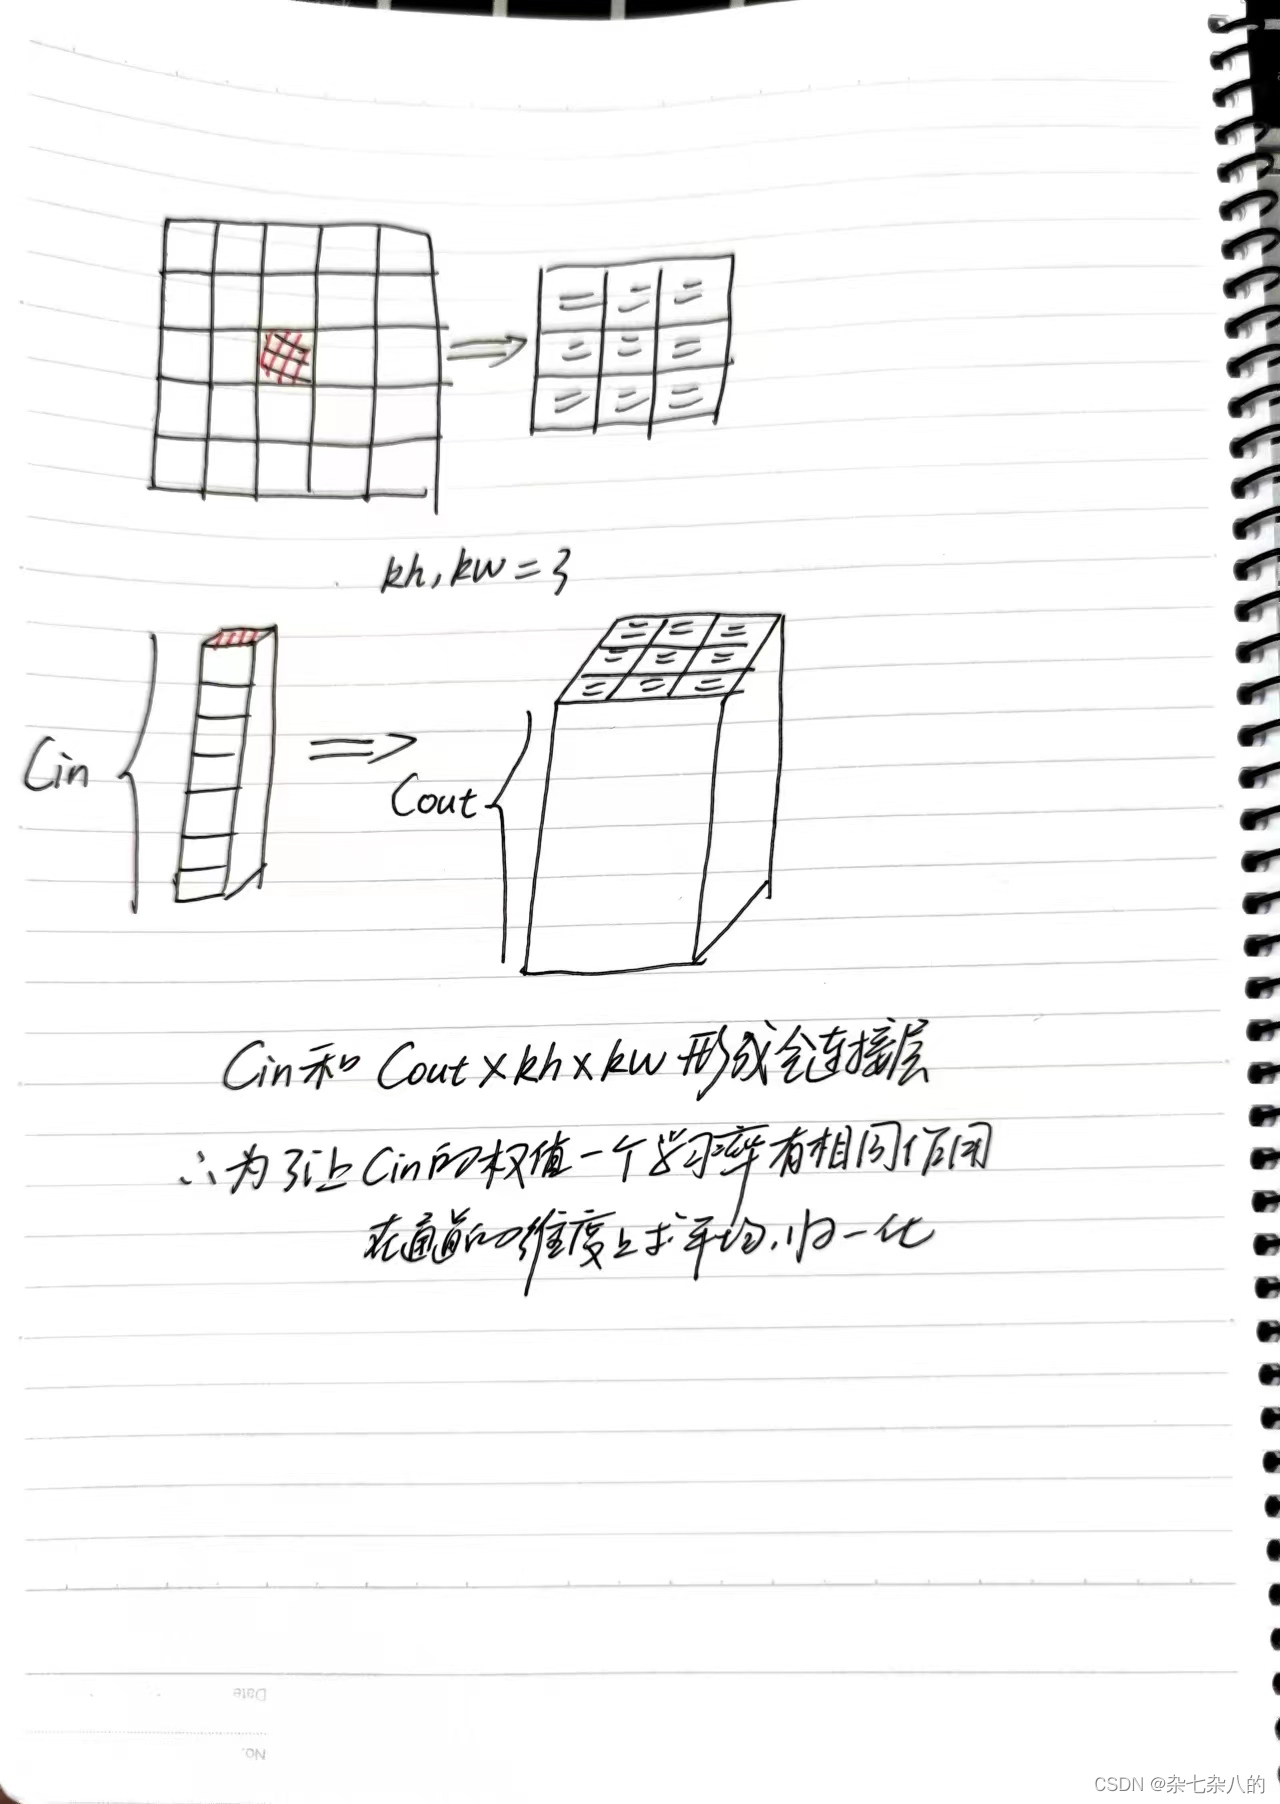 kh, kw = 3
Cin
Cout
Cin和 Cout×kh×kw 形成全连接层
∴为了让Cin的权值一个学习率有相同作用
在通道的维度上求平均,归一化
Date
No.
CSDN @杂七杂八的